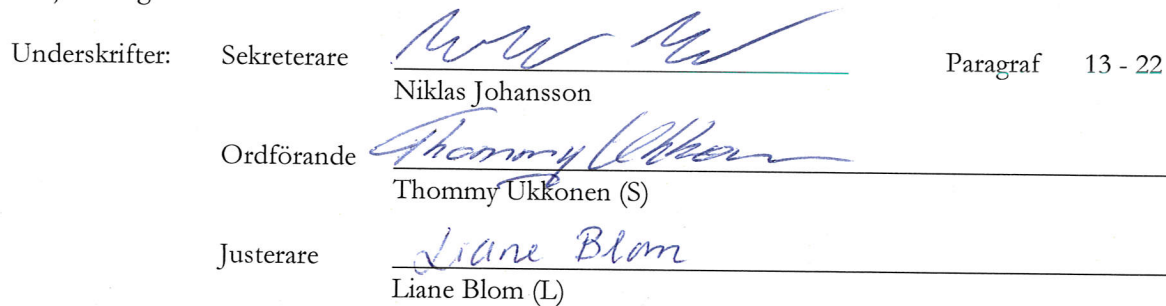 Underskrifter: Sekreterare Paragraf 13 - 22
Niklas Johansson
Ordförande Thommy Ukkonen
Thommy Ukkonen (S)
Justerare Liane Blom
Liane Blom (L)